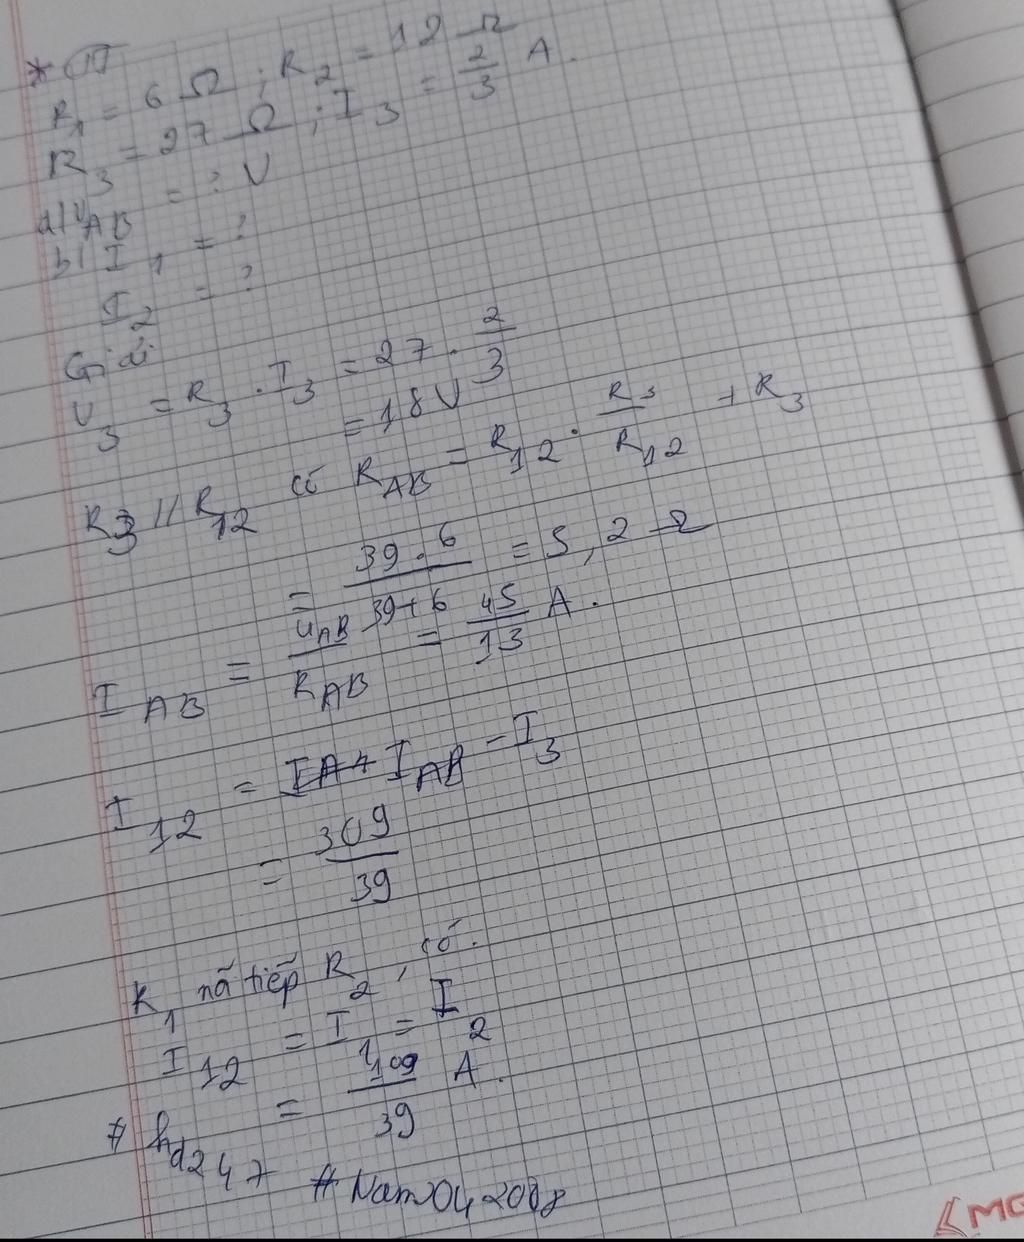 * 17
R1 = 6 Ω ; R2 = 12 Ω
R3 = 27 Ω ; I3 = 2/3 A.
a/ UAB = ? V
b/ I1 = ?
I2 = ?
Giải
U3 = R3 . I3 = 27 . 2/3
= 18 V
R3 // R12 có RAB = R12 . R3/R12 + R3
= 39 . 6/39 + 6 = 5,2 Ω
IAB = UAB/RAB = 45/13 A.
I12 = IAB - I3
= 309/39
R1 nã tiếp R2, có.
I12 = I1 = I2
= 109/39 A.
# hd247 # Nam042008
MG